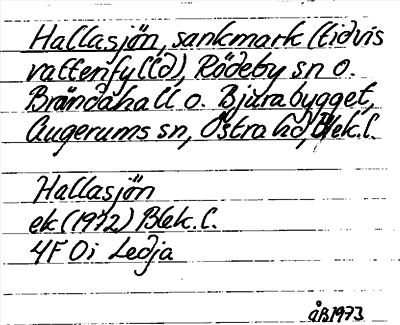 Hallasjön, sankmark (tidvis
vattenfylld), Rödeby sn o.
Brändahall o. Bjurabygget,
Augerums sn, Östra hd, Blek.l.
Hallasjön
ek (1972) Blek.l.
4F 0i Ledja
åB1973